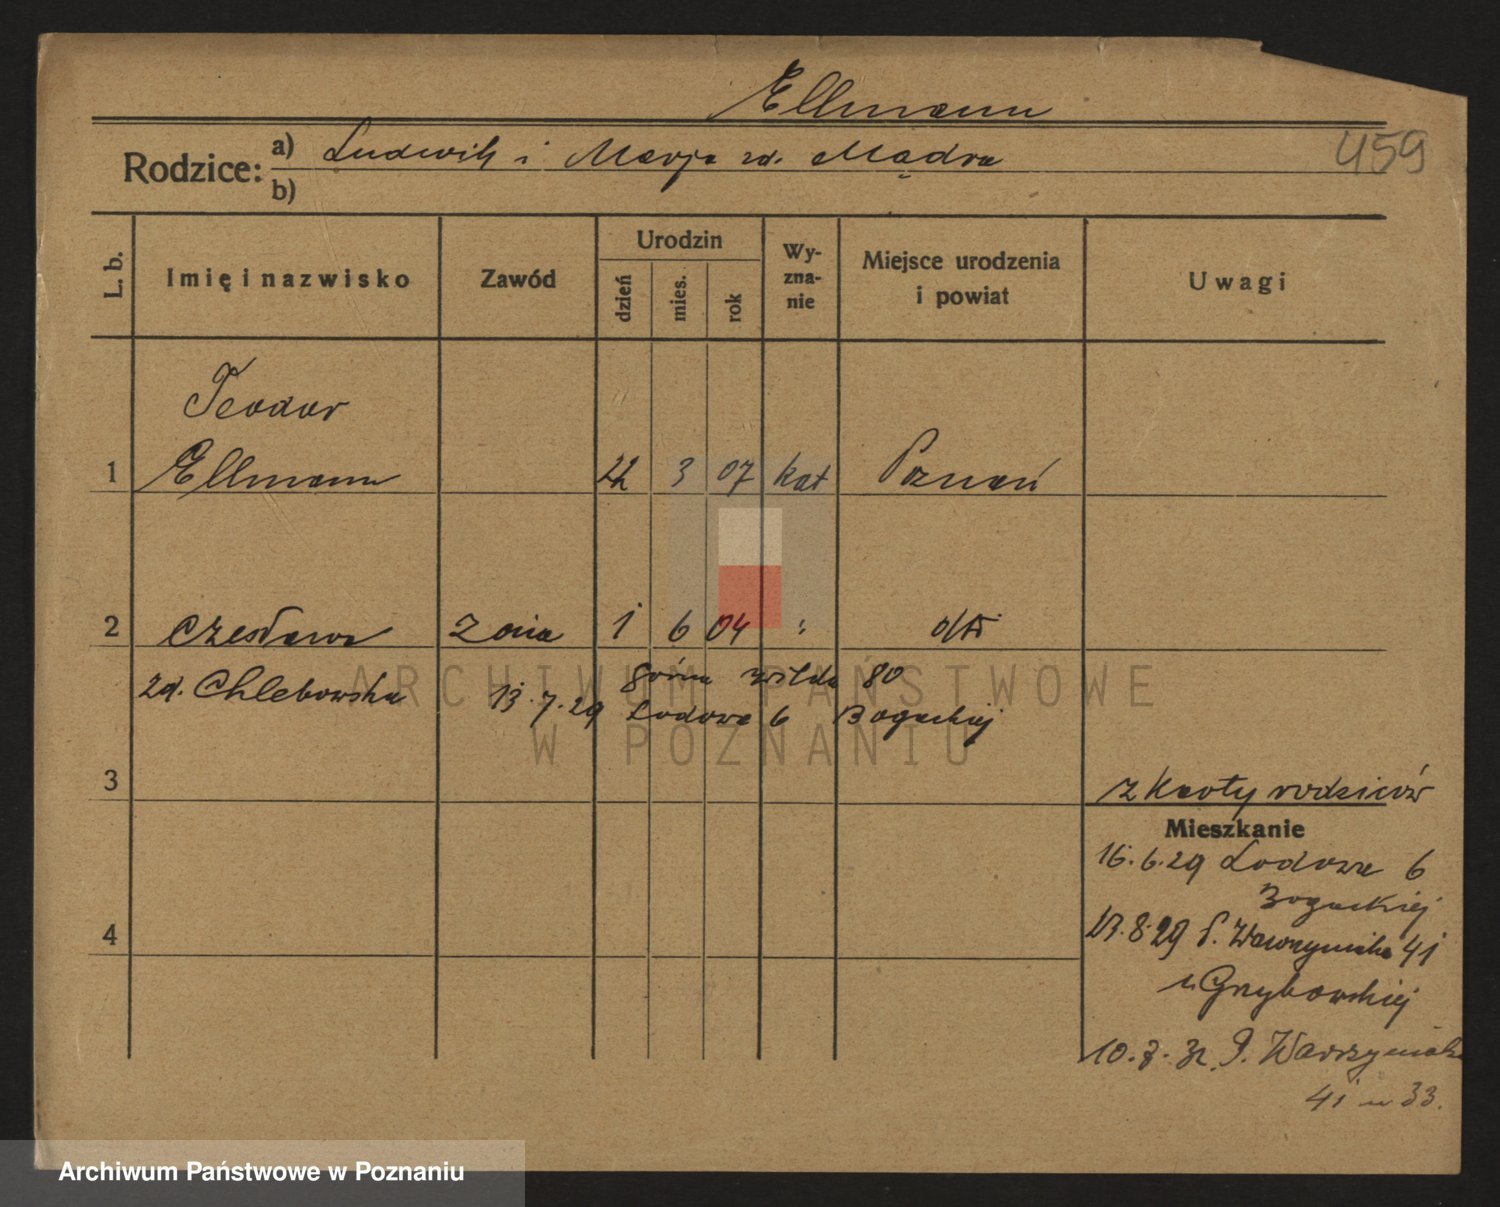 Ellmann
459
Rodzice: a) Ludwik i Marja zd. Mądra
b)
L. b.
Imię i nazwisko
Zawód
Urodzin
dzień
mies.
rok
Wy-
zna-
nie
Miejsce urodzenia
i powiat
Uwagi
Teodor
1 Ellmann 22 3 07 kat Poznań
2 Czesława Żona 1 6 04 : dto
zd. Chlebowska
Górna Wilda 80
13.7.29 Lodowa 6 Bogackiej
ARCHIWUM PAŃSTWOWE
W POZNANIU
3
z karty rodziców
Mieszkanie
16.6.29 Lodowa 6
Bogackiej
4
13.8.29 P. Wawrzyniaka 41
u Grzybowskiej
10.3.32 P. Wawrzyniaka
41 m 33.
Archiwum Państwowe w Poznaniu